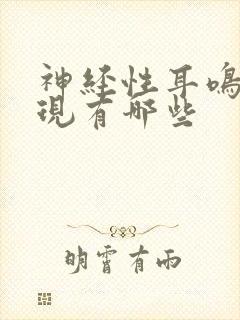 神經性耳鳴
現有哪些
明霄有雨